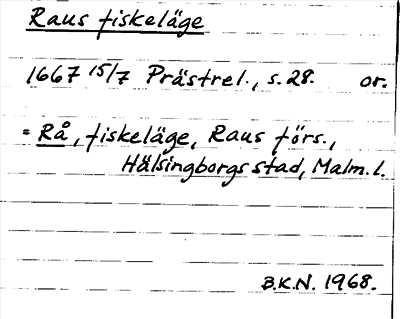 Raus fiskeläge
1667 15/7 Prästrel., s. 28. or.
= Rå, fiskeläge, Raus förs.,
Hälsingborgs stad, Malm. l.
B.K.N. 1968.